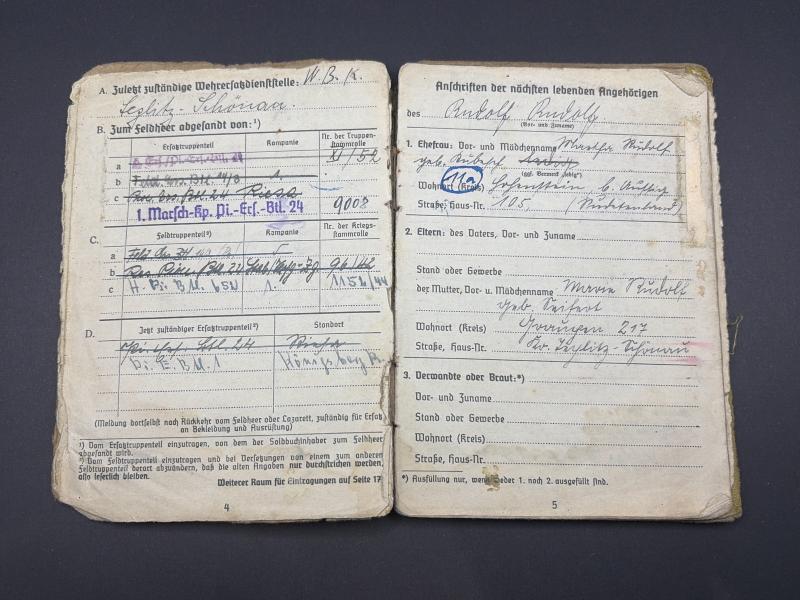 A. Zuletzt zuständige Wehrersatzdienststelle: W. B. K.
Teplitz-Schönau.
B. Zum Feldheer abgesandt von:¹)
Ersatztruppenteil Kompanie Nr. der Truppenstammrolle
a XI/52
b 1.
c Riesa
1. Marsch-Kp. Pi.-Ers.-Btl. 24 9008
C. Feldtruppenteil²) Kompanie Nr. der Kriegsstammrolle
a
b 96/42
c H. Pi. Btl. 652 1. 1152/44
D. Jetzt zuständiger Ersatztruppenteil²) Standort
Pi. Ers. Btl. 24 Riesa
Pi. E. Btl. 1 Königsberg Pr.
(Meldung dortselbst nach Rückkehr vom Feldheer oder Lazarett, zuständig für Ersatz
an Bekleidung und Ausrüstung)
¹) Vom Ersatztruppenteil einzutragen, von dem der Soldbuchinhaber zum Feldheer
abgesandt wird.
²) Vom Feldtruppenteil einzutragen und bei Versetzungen von einem zum anderen
Feldtruppenteil derart abzuändern, daß die alten Angaben nur durchstrichen werden,
also leserlich bleiben.
Weiterer Raum für Eintragungen auf Seite 17
4
Anschriften der nächsten lebenden Angehörigen
des Rudolf Rudolf
(Vor- und Zuname)
1. Ehefrau: Vor- und Mädchenname Martha Rudolf
geb.
(ggf. Vermerk „ledig“)
11a
Wohnort (Kreis) Hohenstein b. Aussig
Straße, Haus-Nr. 105, (Sudetenland)
2. Eltern: des Vaters, Vor- und Zuname
Stand oder Gewerbe
der Mutter, Vor- u. Mädchenname Marie Rudolf
geb. Seifert
Wohnort (Kreis) Graupen 217
Straße, Haus-Nr. Kr. Teplitz-Schönau
3. Verwandte oder Braut:*)
Vor- und Zuname
Stand oder Gewerbe
Wohnort (Kreis)
Straße, Haus-Nr.
*) Ausfüllung nur, wenn weder 1. noch 2. ausgefüllt sind.
5